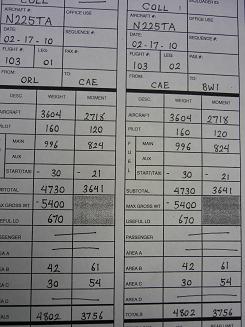 COLL
AIRCRAFT #: OFFICE USE
N225TA
DATE: SEQUENCE #:
02-17-10
FLIGHT #: LEG:
103 01
FROM: TO:
ORL CAE
DESC. WEIGHT MOMENT
AIRCRAFT 3604 2718
PILOT 160 120
MAIN 996 824
AUX
START/TAXI - 30 - 21
SUBTOTAL 4730 3641
MAX GROSS WT -5400
USEFUL LD 670
PASSENGER
AREA A
AREA B 42 61
AREA C 30 54
AREA D
TOTALS 4802 3756
COLL
AIRCRAFT #: OFFICE USE
N225TA
DATE: SEQUENCE #:
02-17-10
FLIGHT #: LEG:
103 02
FROM: TO:
CAE BWI
DESC. WEIGHT MOMENT
AIRCRAFT 3604 2718
PILOT 160 120
FUEL MAIN 996 824
AUX
START/TAXI - 30 - 21
SUBTOTAL 4730 3641
MAX GROSS WT -5400
USEFUL LD 670
PASSENGER
AREA A
AREA B 42 61
AREA C 30 54
AREA D
TOTALS 4802 3756